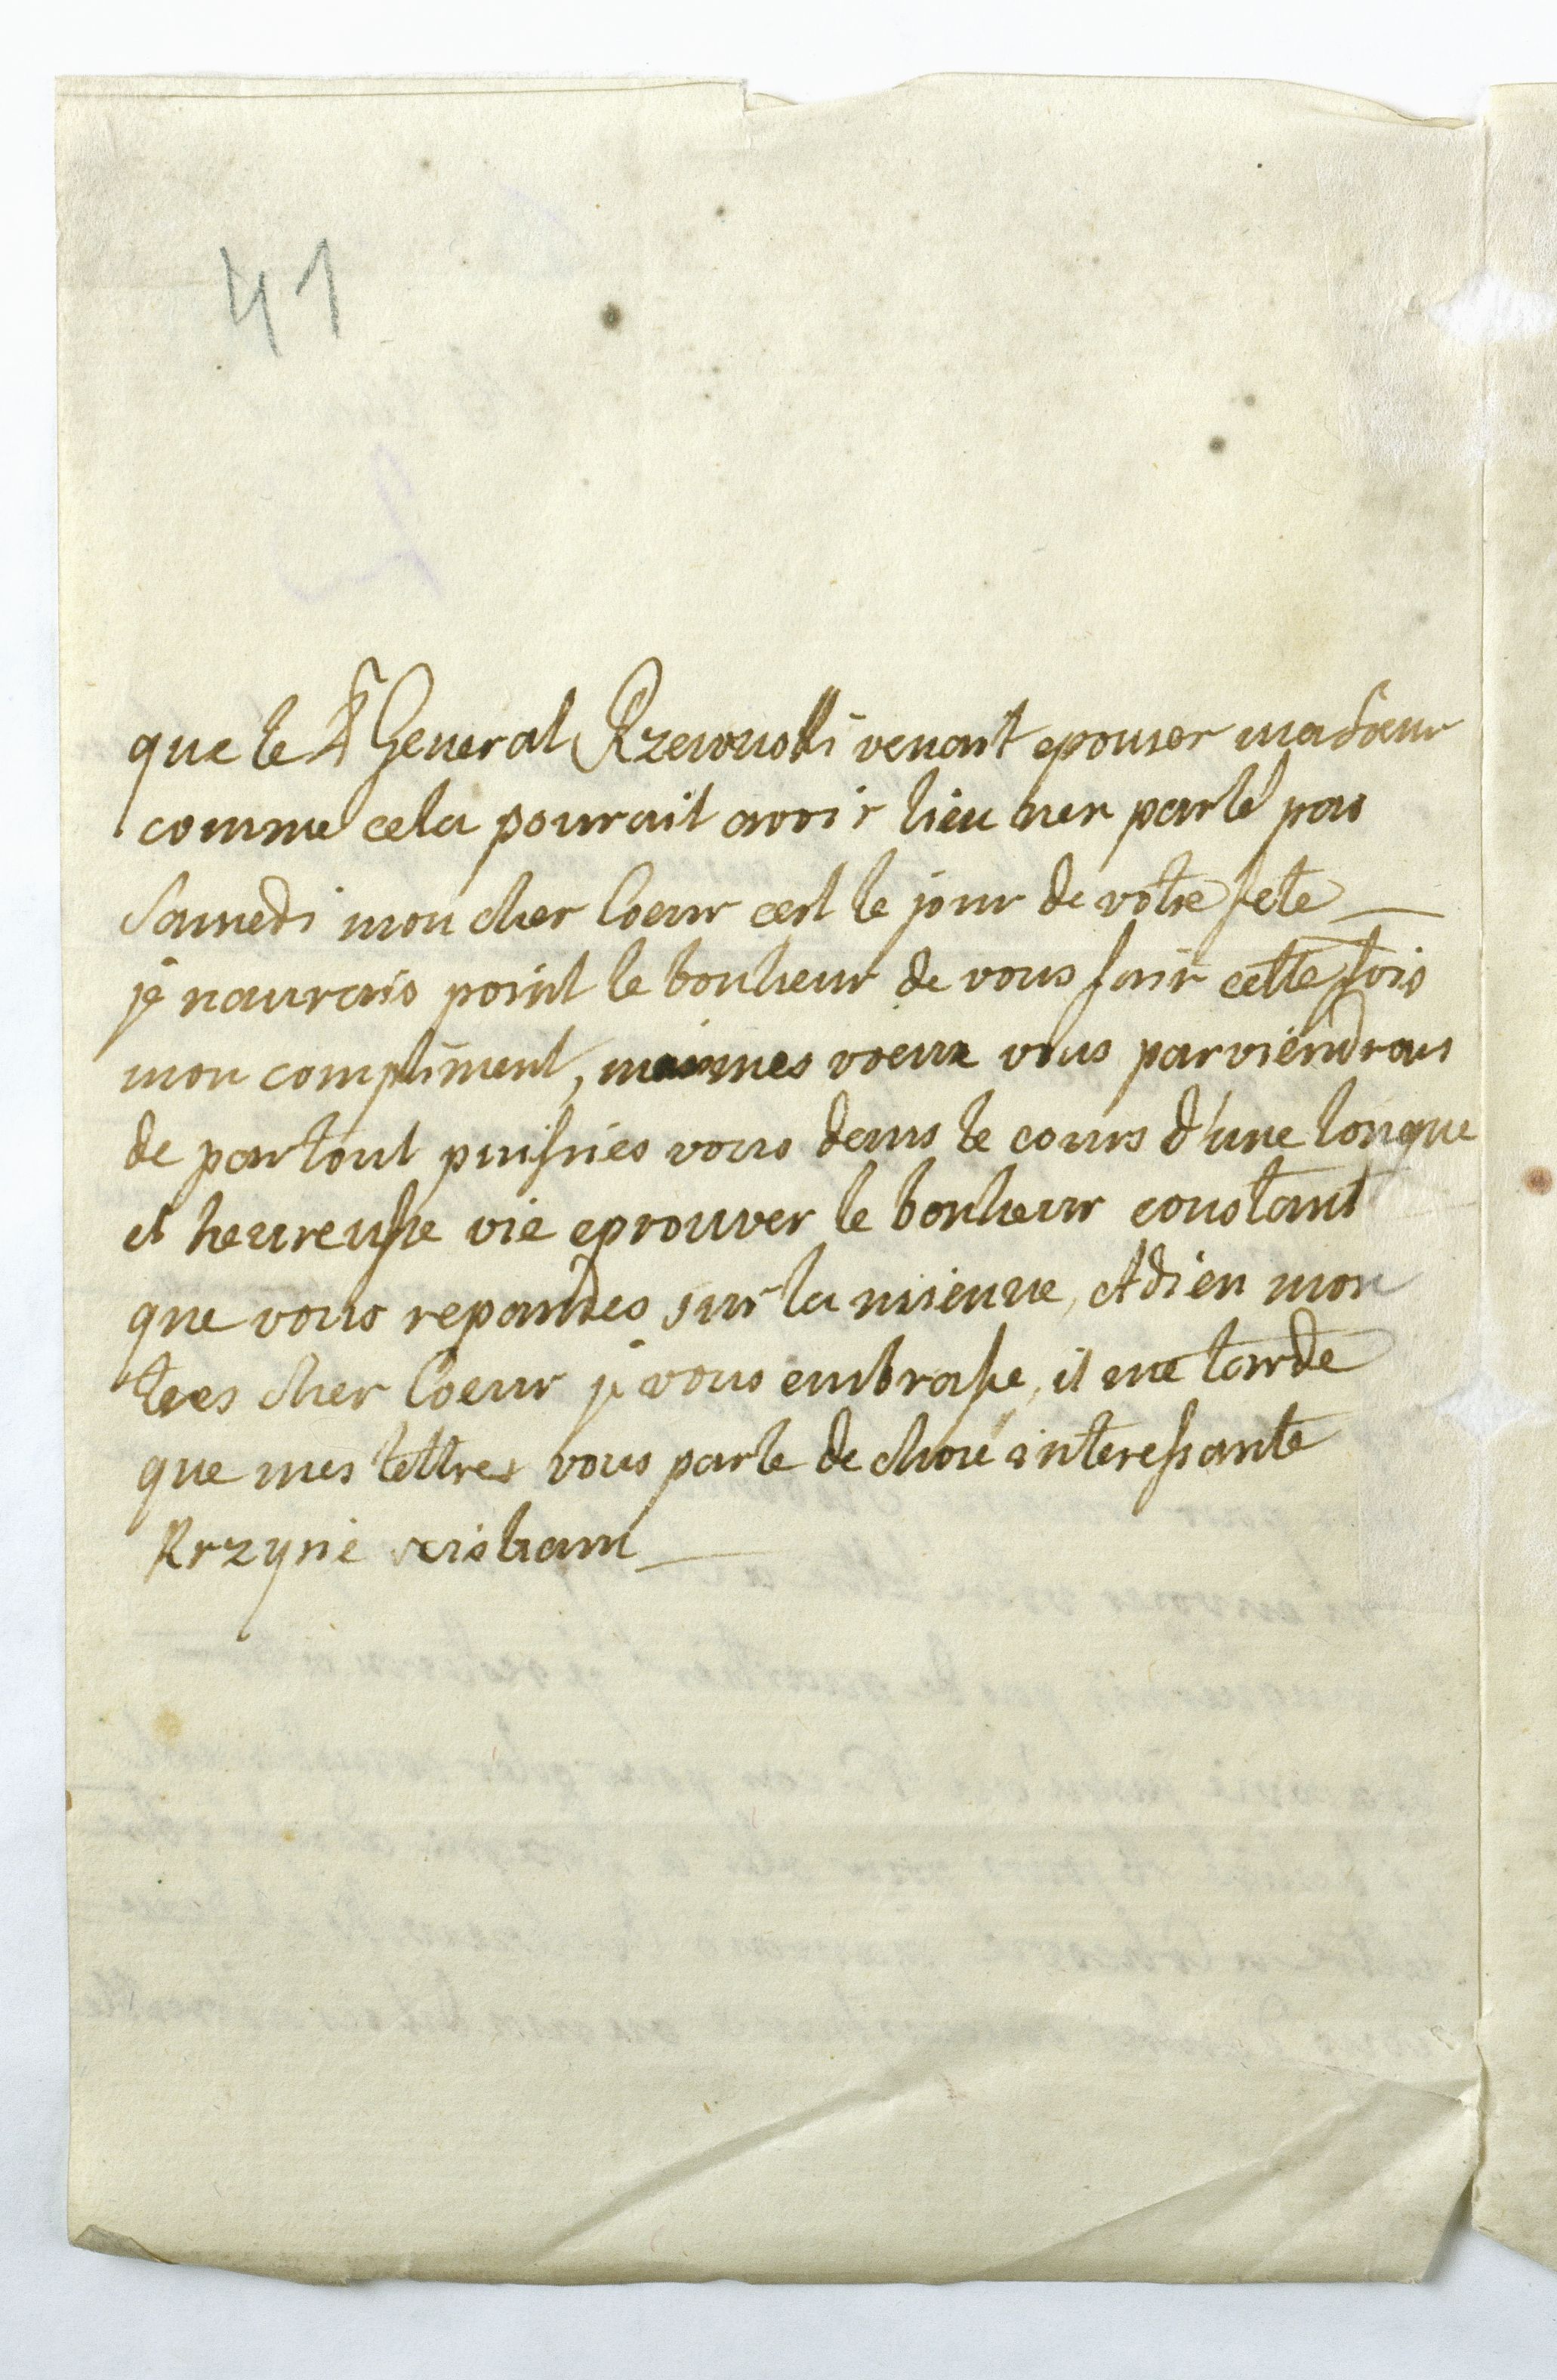 41
que le Gr General Rzewuski venant epouser ma sœur
comme cela pourait avoir lieu nen parlé pas
Samedi mon cher Coeur cest le jour de votre fete —
je naurais point le bonheur de vous fair cette fois
mon compliment, mais mes voeux vous parviendrons
de partout puissiés vous dans le cours d'une longue
et heureusse vie eprouver le bonheur constant
que vous repandes sur la mienne, Adieu mon
tres cher Coeur je vous embrasse, il me tarde
que mes lettres vous parle de chose interessante
Krzysie sciskam —